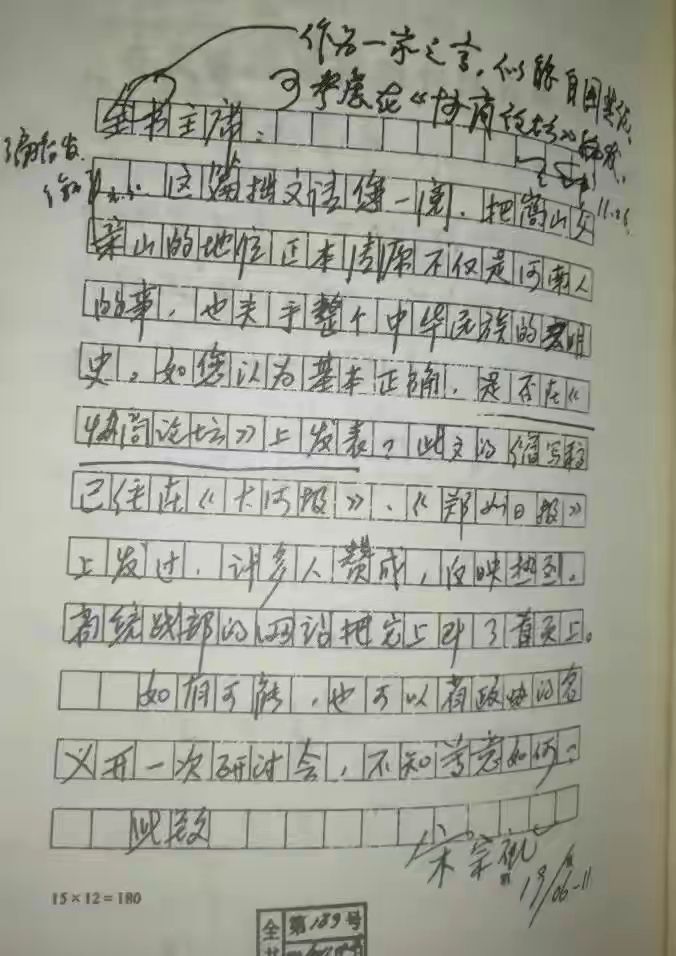 作为一家之言，似能自圆其说，
可考虑在《协商论坛》
11.26
全书主席：
这篇拙文请您一阅，把嵩山与
山的地位正本清源不仅是河南人
的事，也关乎整个中华民族的文明
史。如您认为基本正确，是否在《
协商论坛》上发表？此文的缩写稿
已经在《大河报》、《郑州日报》
上发过，许多人赞成，反映热烈。
省统战部的网站把它上到了首页上。
如有可能，也可以省政协的名
义开一次研讨会，不知尊意如何？
此致
宋宗
15×12=180
全
第189号